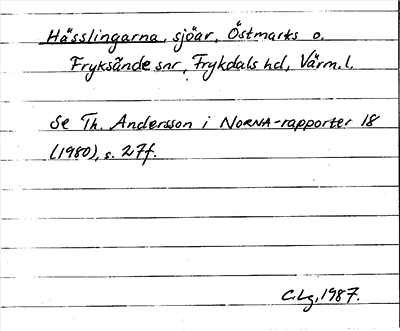 Hässlingarna, sjöar, Östmarks o.
Fryksände snr, Frykdals hd, Värm. l.
Se Th. Andersson i NORNA-rapporter 18
(1980), s. 27f.
C.Lg, 1987.